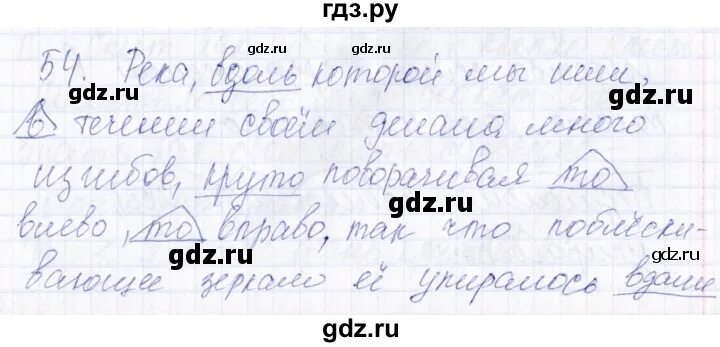 гдз.ру
gdz.ru gdz.ru
54. Река, вдоль которой мы шли,
gdz.ru gdz.ru
в течении своём делала много
изгибов, круто поворачивая то
gdz.ru
влево, то вправо, так что поблёски-
gdz.ru gdz.ru
вающее зеркало её упиралось вдали
gdz.ru